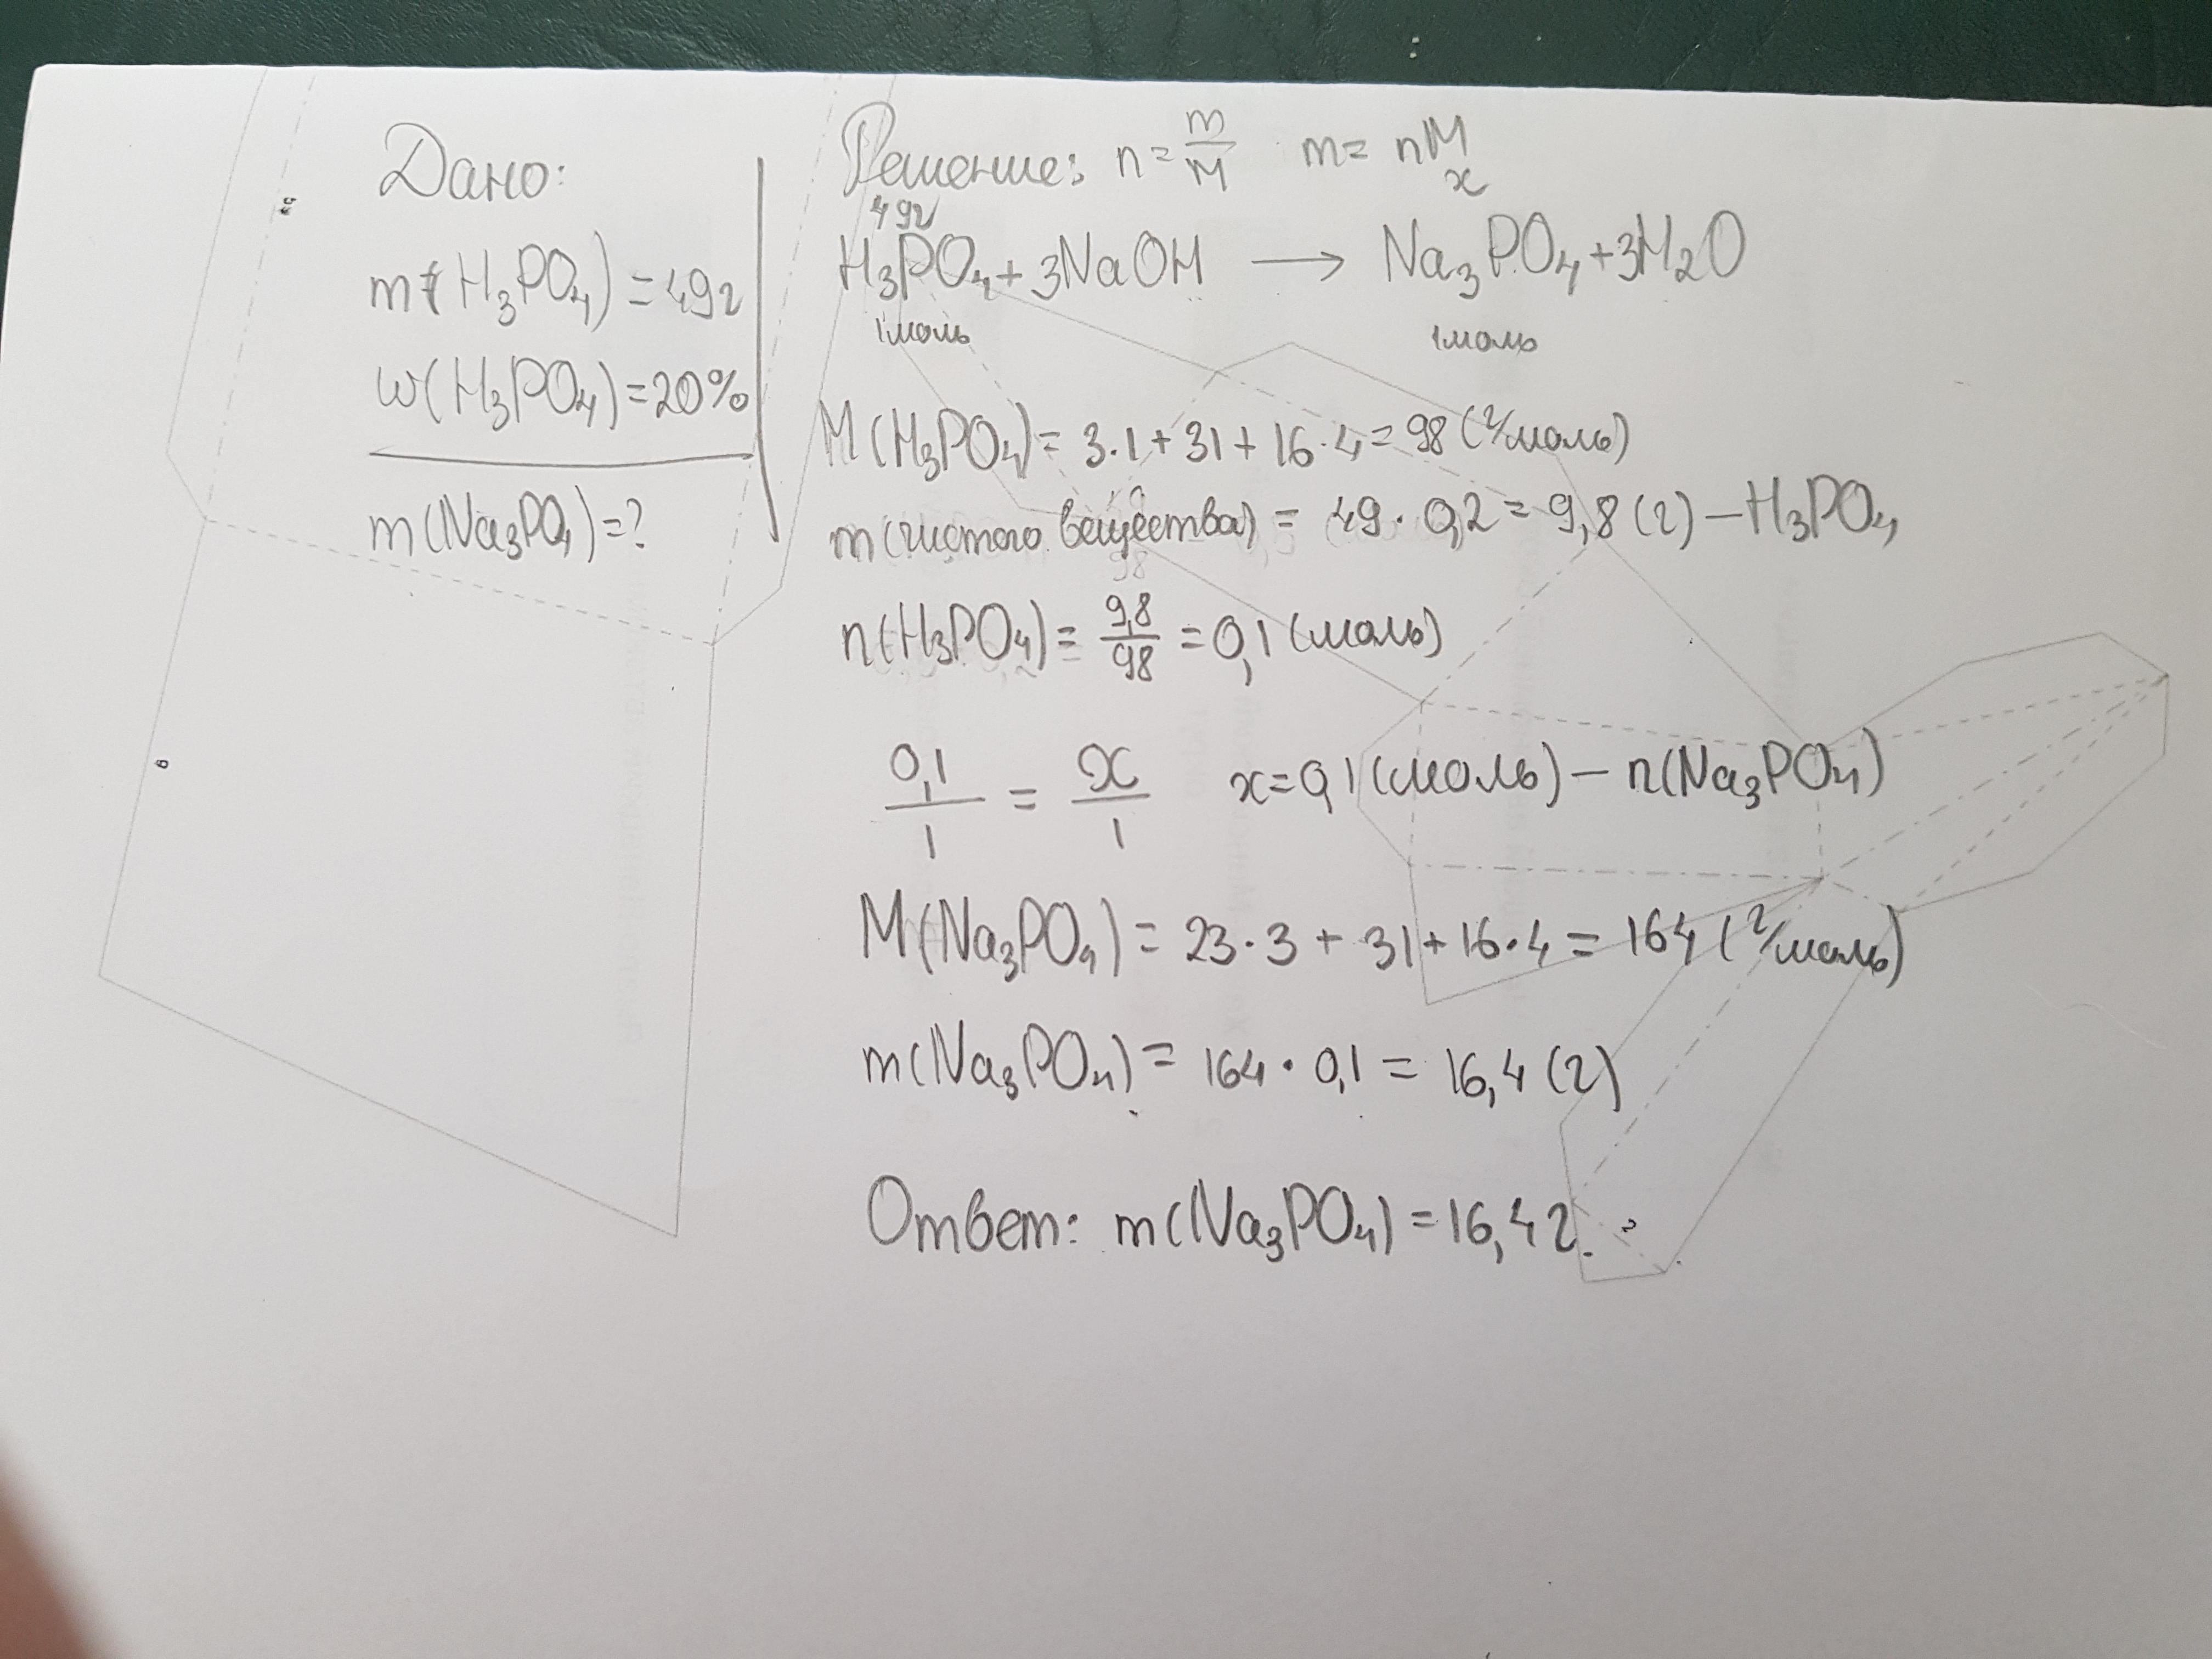 Дано:
m(H₃PO₄) = 49г
w(H₃PO₄) = 20%
m(Na₃PO₄) = ?
Решение: n = m/M m = nM
49г x
H₃PO₄ + 3NaOH → Na₃PO₄ + 3H₂O
1моль 1моль
M(H₃PO₄) = 3·1 + 31 + 16·4 = 98 (г/моль)
m(чистого вещества) = 49 · 0,2 = 9,8 (г) – H₃PO₄
n(H₃PO₄) = 9,8/98 = 0,1 (моль)
0,1/1 = x/1 x = 0,1 (моль) – n(Na₃PO₄)
M(Na₃PO₄) = 23·3 + 31 + 16·4 = 164 (г/моль)
m(Na₃PO₄) = 164 · 0,1 = 16,4 (г)
Ответ: m(Na₃PO₄) = 16,4г.